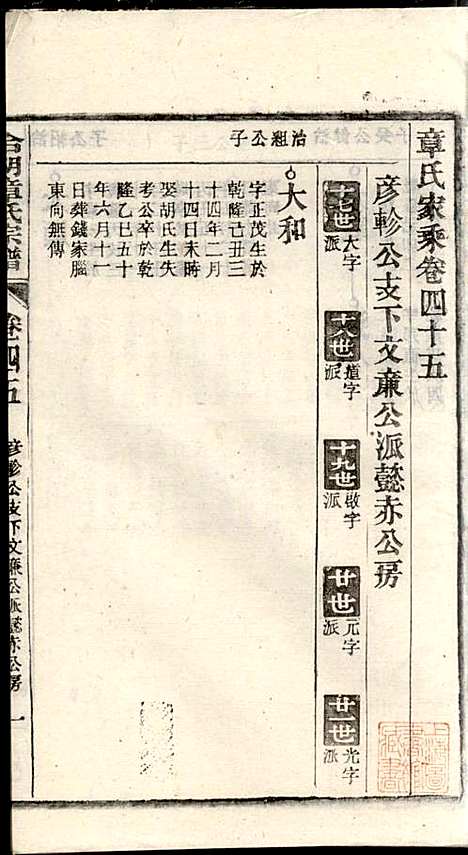 章氏家乘卷四十五
彦軫公支下文廉公派懿赤公房
十七世大字派
十八世道字派
十九世啟字派
廿世元字派
廿一世光字派
治組公子
大和
字正茂生於
乾隆己丑三
十四年二月
十四日未時
娶胡氏生失
考公卒於乾
隆乙巳五十
年六月十一
日葬錢家腦
東向無傳
章氏宗譜
卷四五
彦軫公支下文廉公派懿赤公房
一